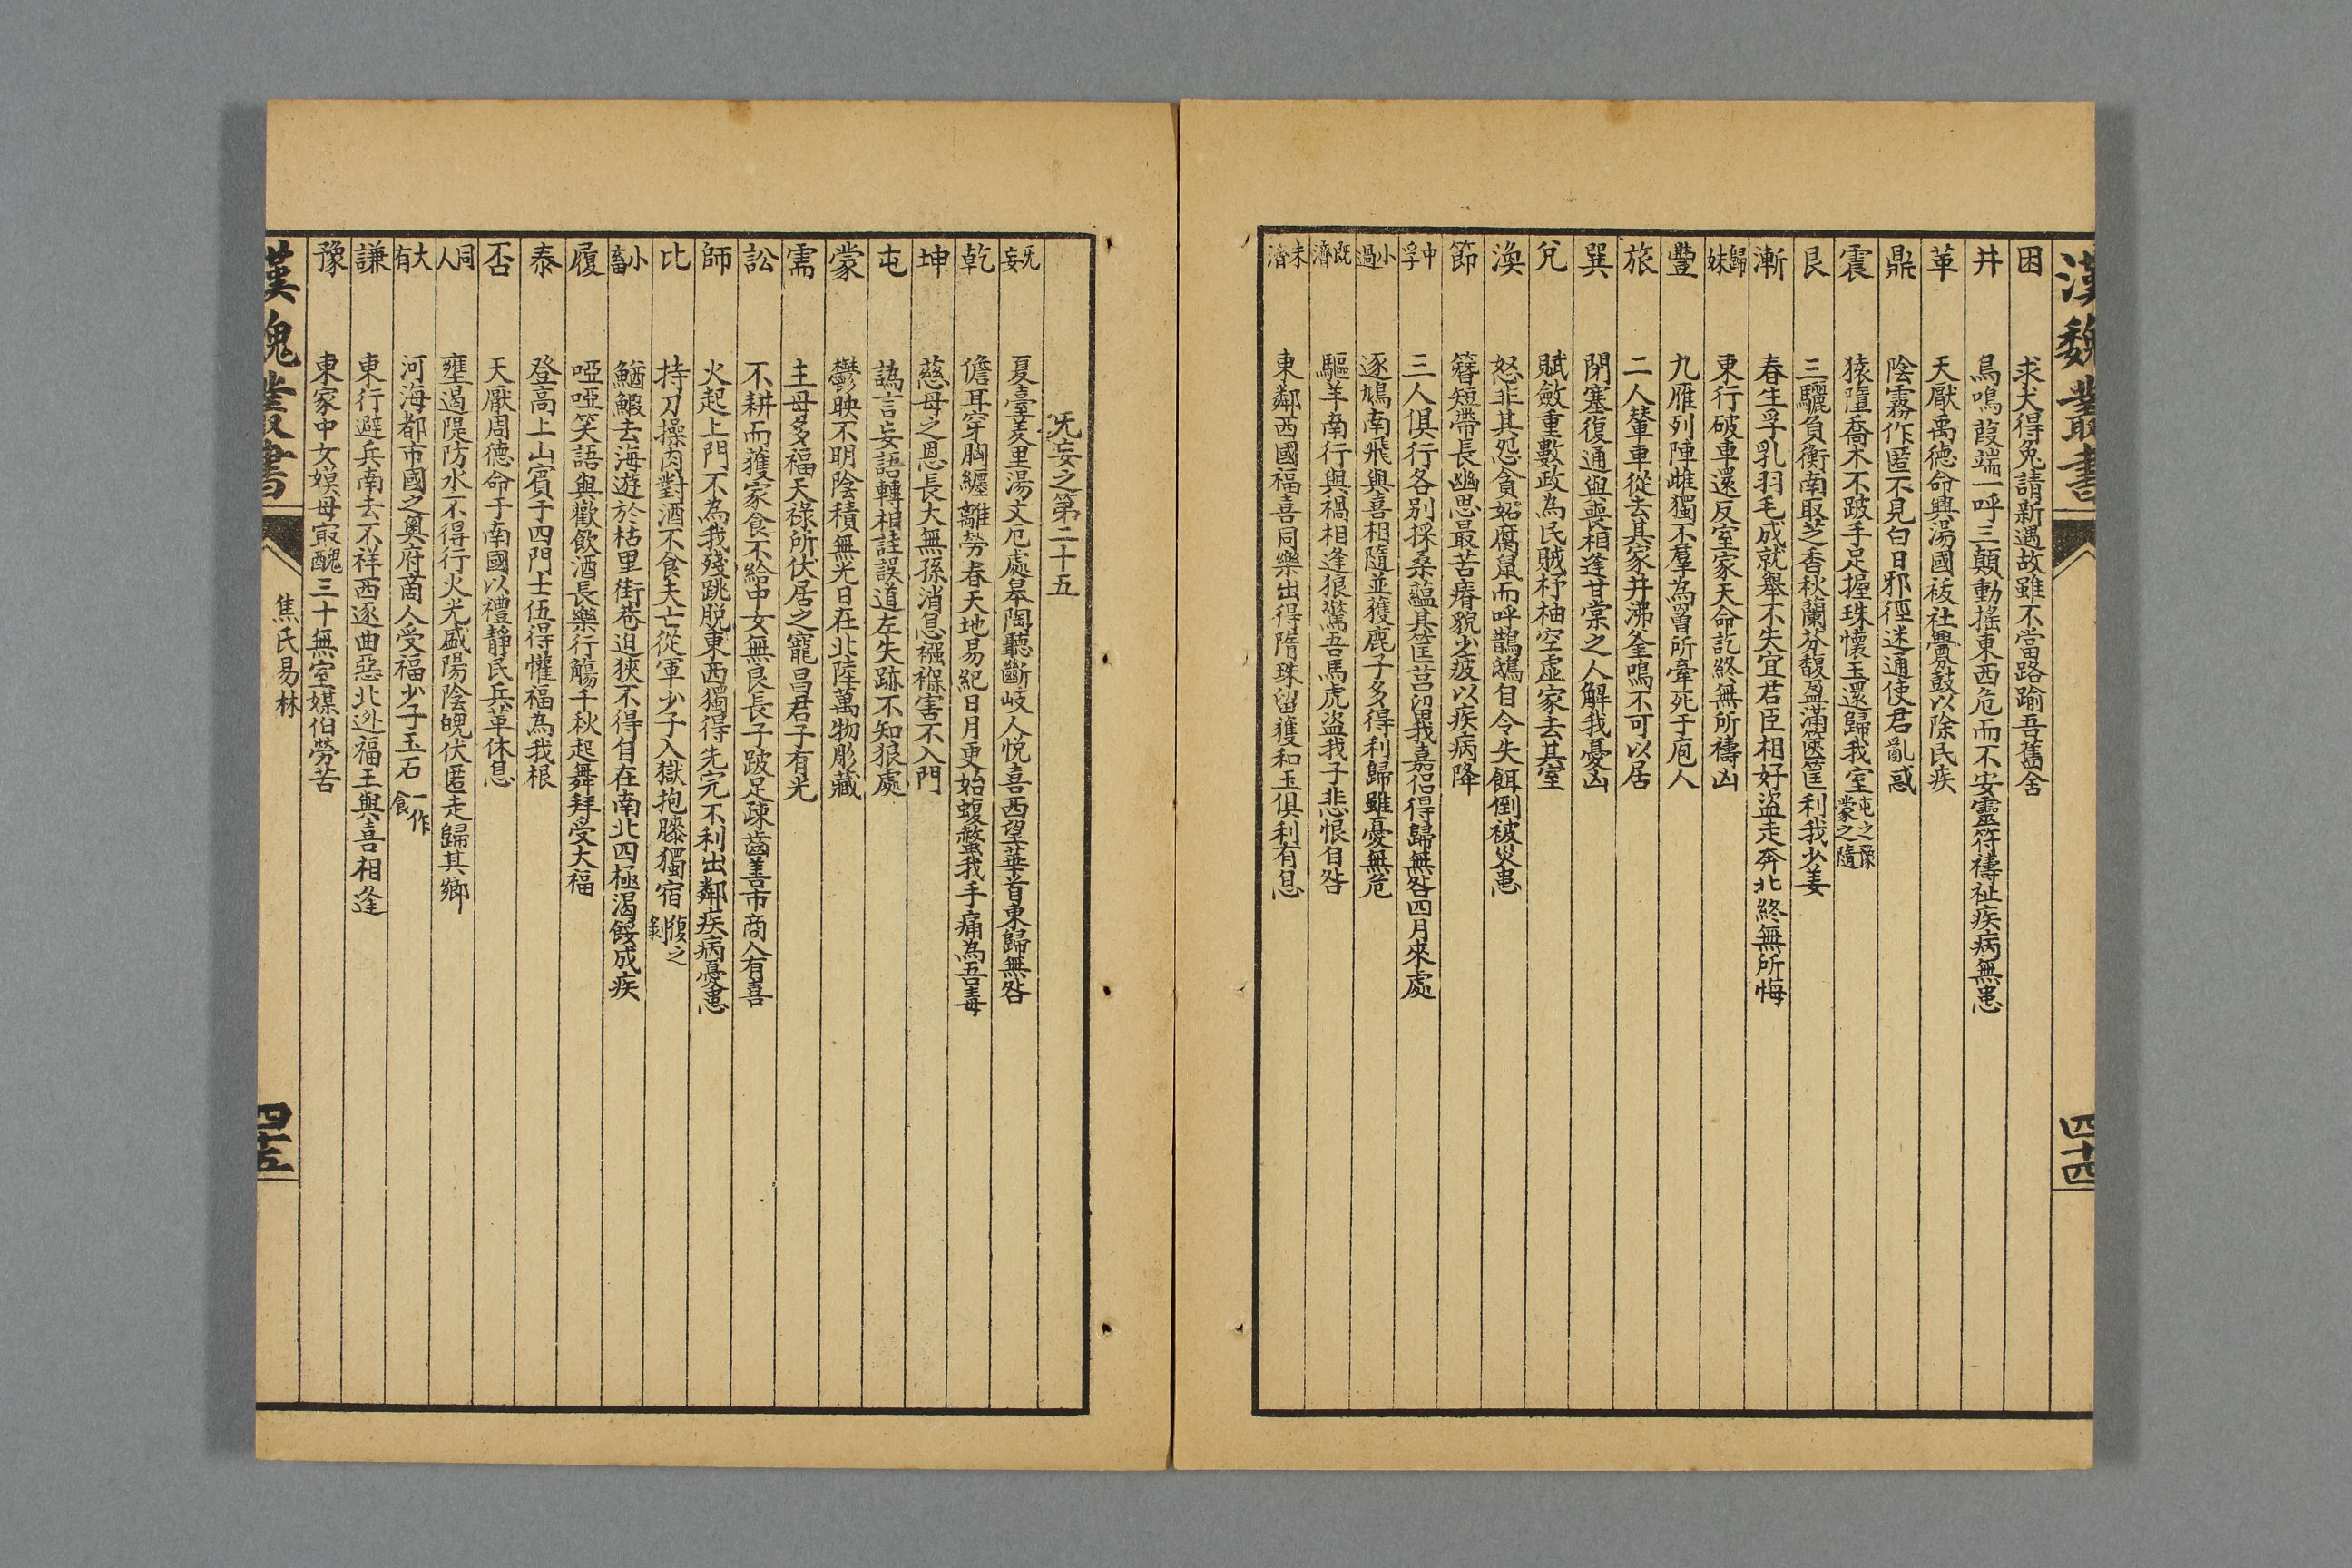 漢魏叢書
四十四
困 求犬得兔請新遇故雖不當路踰吾舊舍
井 鳥鳴葭端一呼三顛動搖東西危而不安靈符禱祉疾病無患
革 天厭禹德命興湯國祓社釁鼓以除民疾
鼎 陰霧作匿不見白日邪徑迷通使君亂惑
震 猿墮喬木不跛手足握珠懷玉還歸我室屯之豫蒙之隨
艮 三驪負衡南取芝香秋蘭芬馥盈滿篋筐利我少姜
漸 春生孚乳羽毛成就舉不失宜君臣相好盜走奔北終無所悔
歸妹 東行破車還反室家天命訖終無所禱凶
豐 九雁列陣雌獨不羣為罾所牽死于庖人
旅 二人輦車從去其家井沸釜鳴不可以居
巽 閉塞復通與喪相逢甘棠之人解我憂凶
兌 賦斂重數政為民賊杼柚空虛家去其室
渙 怒非其怨貪妬腐鼠而呼鵲鴟自令失餌倒被災患
節 簪短帶長幽思最苦瘠貌少疲以疾病降
中孚 三人俱行各別採桑蘊其筐筥留我嘉侶得歸無咎四月來處
小過 逐鳩南飛與喜相隨並獲鹿子多得利歸雖憂無危
既濟 驅羊南行與禍相逢狼驚吾馬虎盜我子悲恨自咎
未濟 東鄰西國福喜同樂出得隋珠留獲和玉俱利有息
旡妄之第二十五
旡妄 夏臺羑里湯文厄處皋陶聽斷岐人悅喜西望華首東歸無咎
乾 儋耳穿胸纏離勞春天地易紀日月更始蝮螫我手痛為吾毒
坤 慈母之恩長大無孫消息襁褓害不入門
屯 譌言妄語轉相詿誤道左失跡不知狼處
蒙 鬱映不明陰積無光日在北陸萬物彫藏
需 主母多福天祿所伏居之寵昌君子有光
訟 不耕而獲家食不給中女無良長子跛足疎齒善市商人有喜
師 火起上門不為我殘跳脫東西獨得先完不利出鄰疾病憂患
比 持刀操肉對酒不食夫亡從軍少子入獄抱膝獨宿復之剝
小畜 鰌鰕去海遊於枯里街巷迫狹不得自在南北四極渴餒成疾
履 啞啞笑語與歡飲酒長樂行觴千秋起舞拜受大福
泰 登高上山賓于四門士伍得懽福為我根
否 天厭周德命于南國以禮靜民兵革休息
同人 壅遏隄防水不得行火光盛陽陰蜺伏匿走歸其鄉
大有 河海都市國之奧府商人受福少子玉石一作食
謙 東行避兵南去不祥西逐曲惡北迯福王與喜相逢
豫 東家中女嫫母㝡醜三十無室媒伯勞苦
漢魏叢書
焦氏易林
四十五